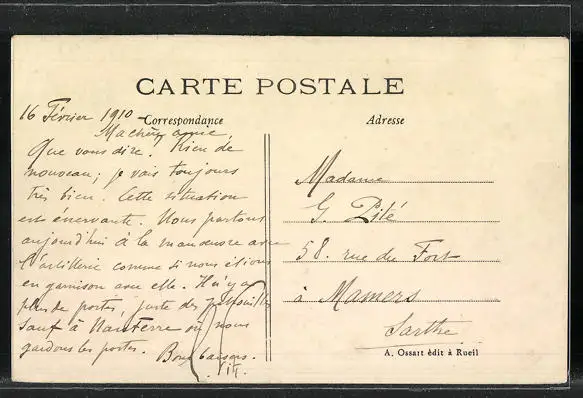 CARTE POSTALE
Correspondance
Adresse
16 Février 1910
Ma chère amie,
Que vous dire. Rien de
nouveau; je vais toujours
très bien. Cette situation
est énervante. Nous partons
aujourd'hui à la manœuvre avec
l'artillerie comme si nous étions
en garnison avec elle. Il n'y a
plus de postes, juste des patrouilles
sauf à Nanterre où nous
gardons les portes. Bons baisers.
Madame
G. Pilé
58. rue du Fort
à Mamers
Sarthe
A. Ossart édit à Rueil